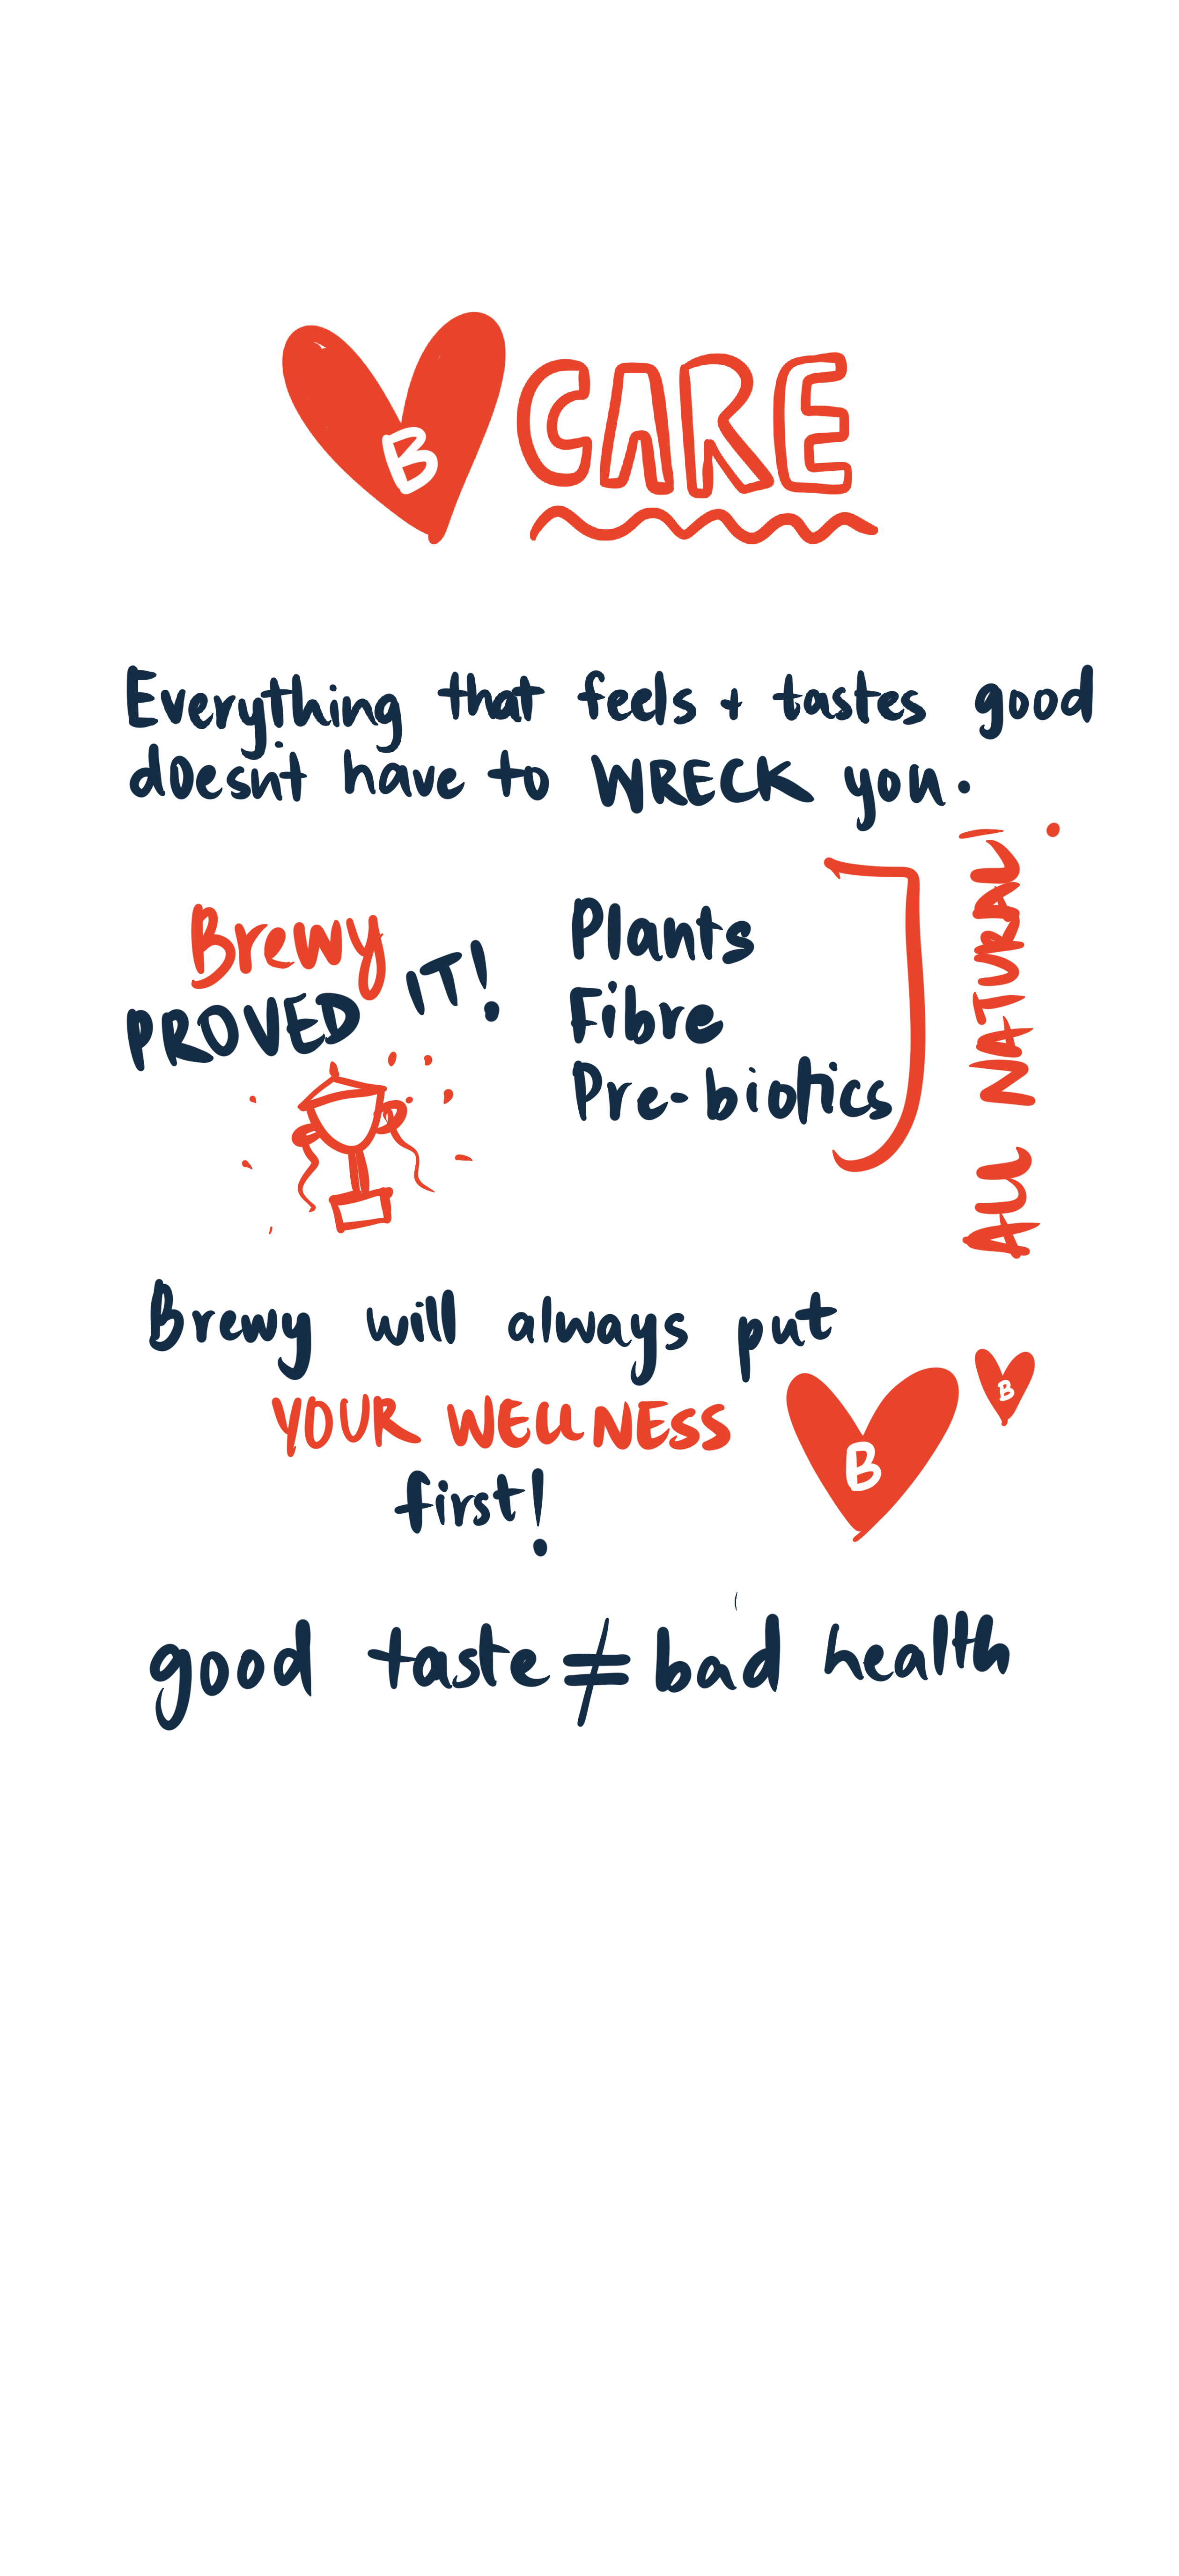 B CARE
Everything that feels + tastes good
doesn't have to WRECK you.
Brewy
PROVED IT!
Plants
Fibre
Pre-biotics
ALL NATURAL!
Brewy will always put
YOUR WELLNESS
first!
B
B
good taste ≠ bad health